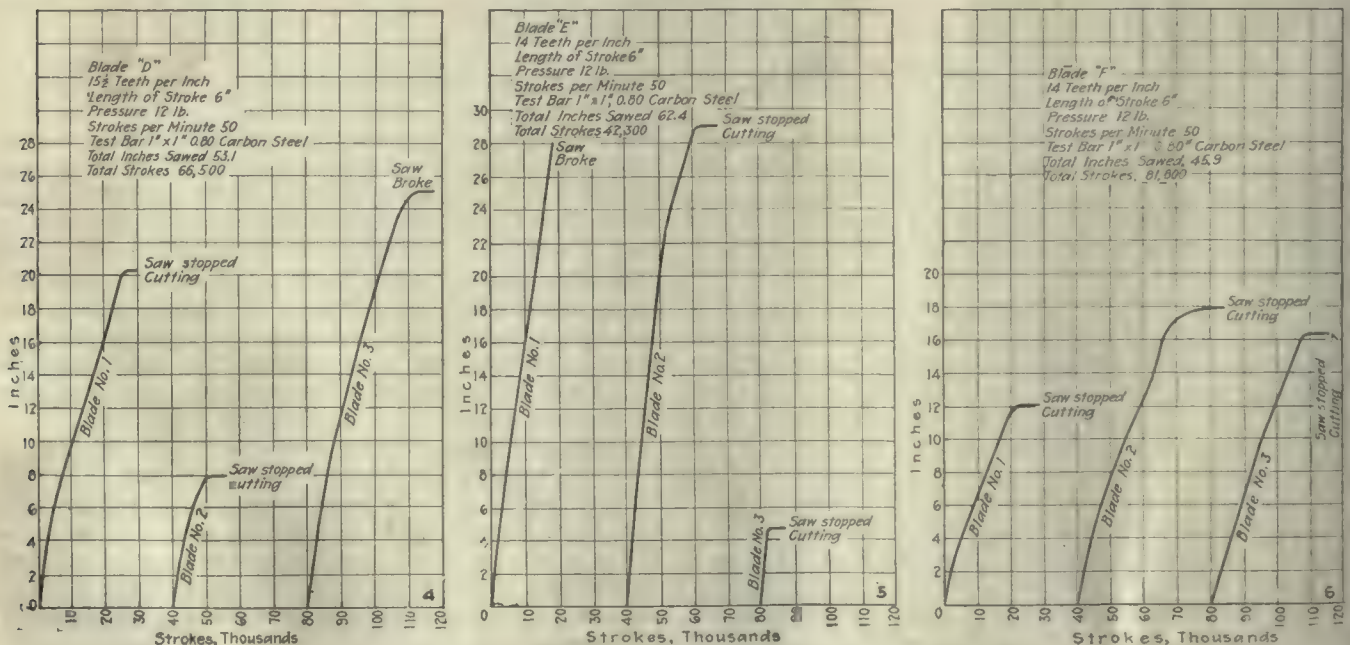 Blade "D"
15½ Teeth per Inch
Length of Stroke 6"
Pressure 12 lb.
Strokes per Minute 50
Test Bar 1" x 1" 0.80 Carbon Steel
Total Inches Sawed 53.1
Total Strokes 66,500
Saw stopped
Cutting
Saw stopped
Cutting
Saw
Broke
Blade No. 1
Blade No. 2
Blade No. 3
Inches
28
26
24
22
20
18
16
14
12
10
8
6
4
2
0
10 20 30 40 50 60 70 80 90 100 110 120
Strokes, Thousands
4
Blade "E"
14 Teeth per Inch
Length of Stroke 6"
Pressure 12 lb.
Strokes per Minute 50
Test Bar 1" x 1", 0.80 Carbon Steel
Total Inches Sawed 62.4
Total Strokes 42,300
Saw
Broke
Saw stopped
Cutting
Saw stopped
Cutting
Blade No. 1
Blade No. 2
Blade No. 3
Inches
30
28
26
24
22
20
18
16
14
12
10
8
6
4
2
0
10 20 30 40 50 60 70 80 90 100 110 120
Strokes, Thousands
5
Blade "F"
14 Teeth per Inch
Length of Stroke 6"
Pressure 12 lb.
Strokes per Minute 50
Test Bar 1" x 1 0.80" Carbon Steel
Total Inches Sawed, 45.9
Total Strokes, 81,800
Saw stopped
Cutting
Saw stopped
Cutting
Saw stopped
Cutting
Blade No. 1
Blade No. 2
Blade No. 3
Inches
20
18
16
14
12
10
8
6
4
2
0
10 20 30 40 50 60 70 80 90 100 110 120
Strokes, Thousands
6